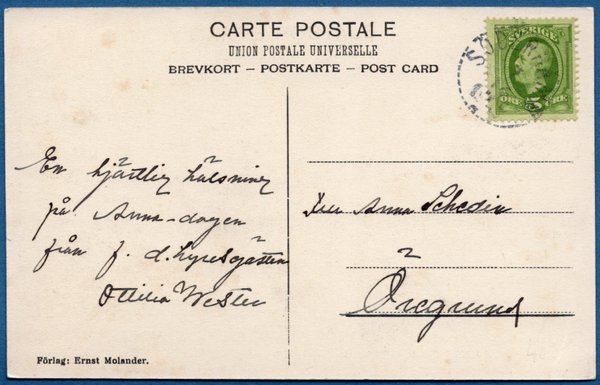 CARTE POSTALE
UNION POSTALE UNIVERSELLE
BREVKORT – POSTKARTE – POST CARD
SVERIGE
ÖRE 5 ÖRE
En hjärtlig hälsning
på Anna-dagen
från f. d. hyresgästen
Ottilia Wester
Anna Schedin
Öregrund
Förlag: Ernst Molander.